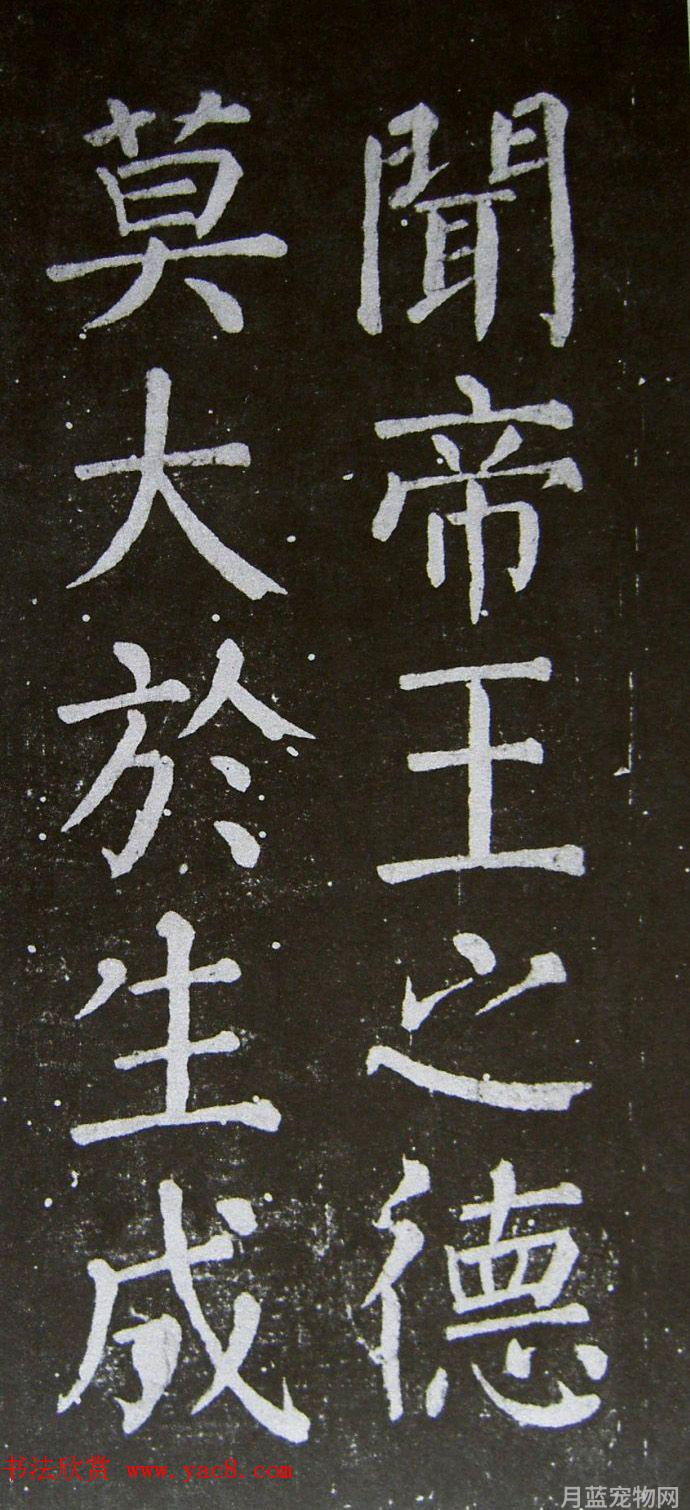 聞帝王之德
莫大於生成
书法欣赏 www.yac8.com
月蓝宠物网